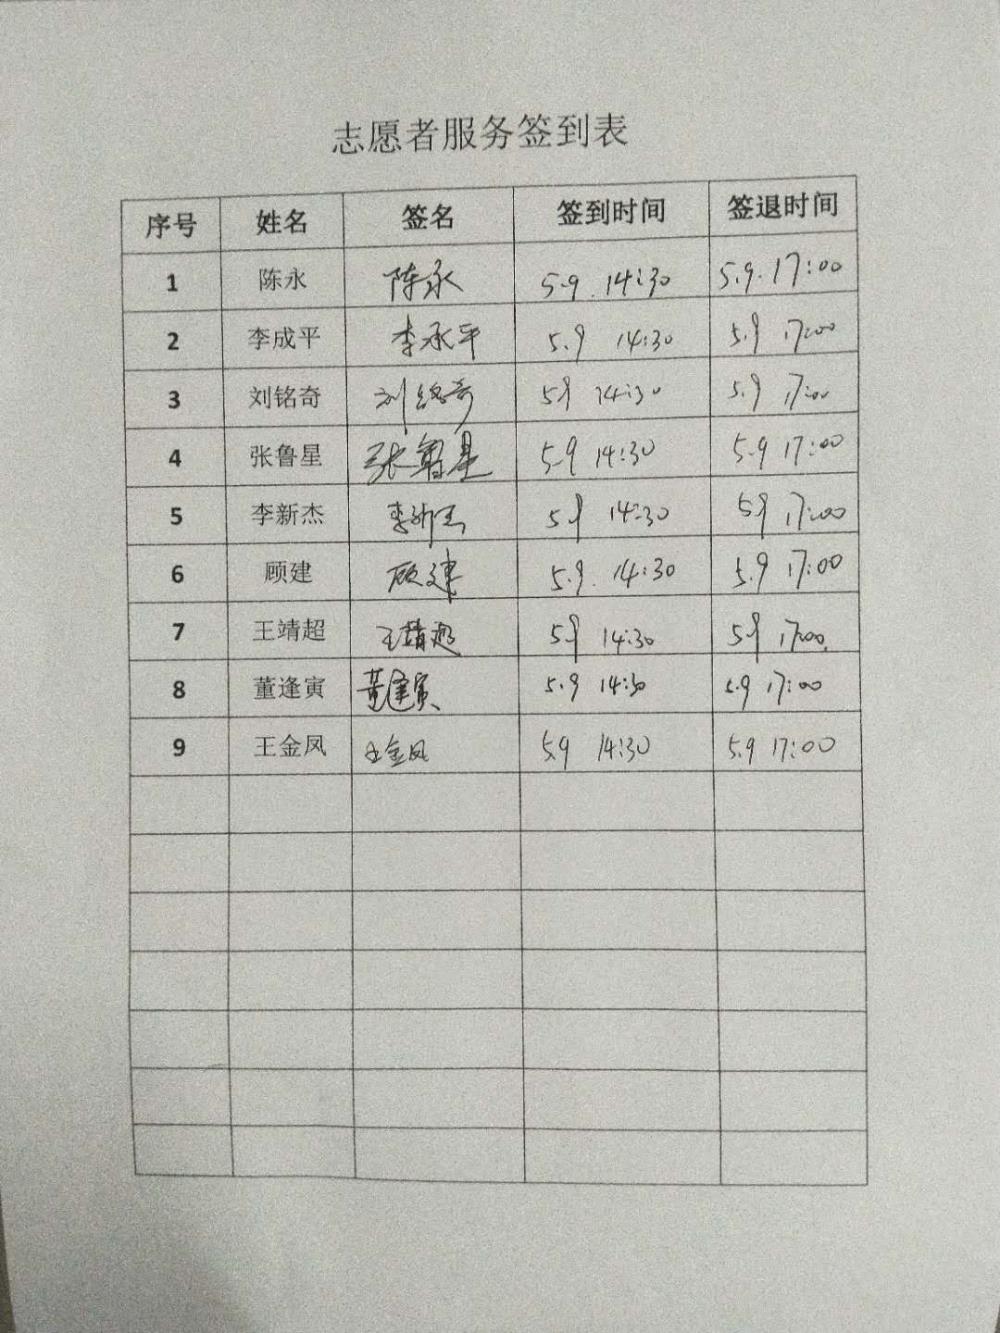 志愿者服务签到表
序号 姓名 签名 签到时间 签退时间
1 陈永 陈永 5.9. 14:30 5.9. 17:00
2 李成平 李承平 5.9 14:30 5.9 17:00
3 刘铭奇 刘铭奇 5.9 14:30 5.9 17:00
4 张鲁星 张鲁星 5.9 14:30 5.9 17:00
5 李新杰 李新杰 5.9 14:30 5.9 17:00
6 顾建 顾建 5.9. 14:30 5.9 17:00
7 王靖超 王靖超 5.9 14:30 5.9 17:00.
8 董逢寅 董逢寅 5.9 14:30 5.9 17:00
9 王金凤 王金凤 5.9 14:30 5.9 17:00